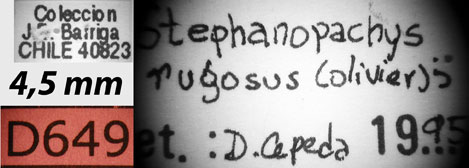 Coleccion
J. E. Barriga
CHILE 40823
4,5 mm
D649
Stephanopachys
rugosus (olivier)
et. : D. Cepeda 1995